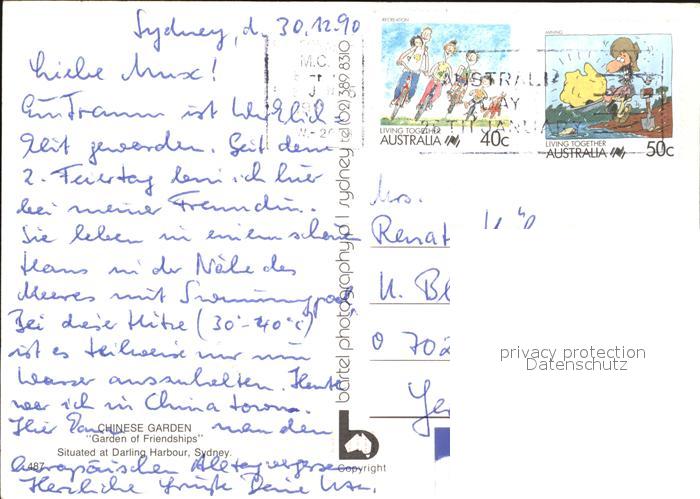 Sydney, d. 30.12.90
Liebe Mux!
Ein Traum ist Wirklich-
keit geworden. Seit dem
2. Feiertag bin ich hier
bei meiner Freundin.
Sie leben in einem schönen
Haus in der Nähe des
Meeres mit Swimmingpool.
Bei dieser Hitze (30°-40°C)
ist es teilweise nur im
Wasser auszuhalten. Heute
war ich in China town.
Hier kann man den
europäischen Alltag vergessen.
Herzliche Grüße Deine
CHINESE GARDEN
"Garden of Friendships"
Situated at Darling Harbour, Sydney.
487
bartel photography p l sydney tel (02) 389 8310
b
Copyright
RECREATION
LIVING TOGETHER
AUSTRALIA 40c
MINING
LIVING TOGETHER
AUSTRALIA 50c
M.C.
AUSTRALIA
DAY
26TH JANUARY
Mrs.
Renat
K. Bl
O 702
Ge
privacy protection
Datenschutz